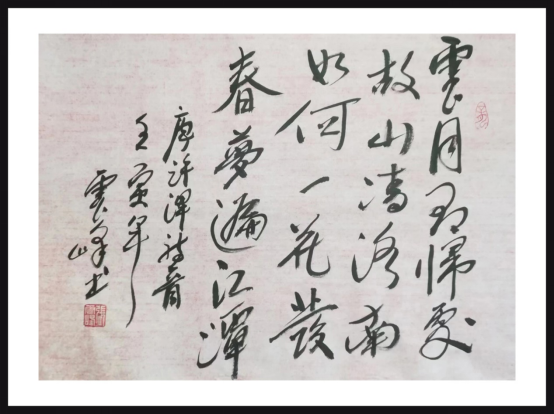 雲月有歸處
故山清洛南
如何一花發
春夢遍江潭
唐許渾詩首
壬寅年
雲峰书